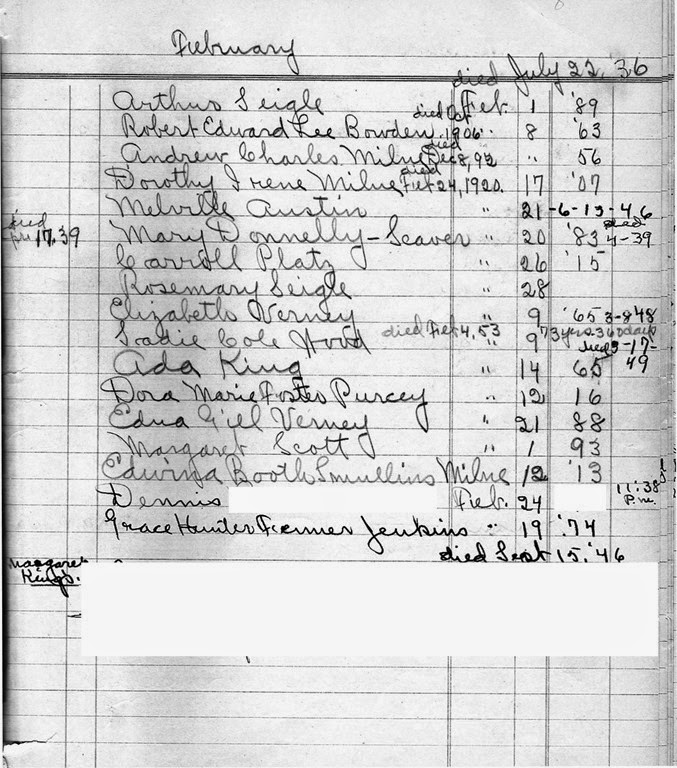 February
died July 22, '36
Arthur Seigle Feb. 1 '89
died Oct
Robert Edward Lee Bowden 1906 " 8 '63
died
Andrew Charles Milne Dec 8, 92 " 56
died
Dorothy Irene Milne Feb 24, 1920. 17 '07
Melville Austin " 21 -6-13-46
died died
17.39 Mary Donnelly-Seaver " 20 '83 4-39
Carroll Platz " 26 '15
Rosemary Seigle " 28
Elizabeth Verney " 9 '65 3-8 48
Sadie Cole Hood died Feb 4, 53 " 9 73 yrs-360 days
died 3-17-
Ada King " 14 65 49
Dora Marie Foster Purcey " 12 16
Edna Gill Verney " 21 88
Margaret Scott " 1 93
Edwina Booth Smullins Milne 12 '13
Dennis Feb. 24 11:38
P.m.
Grace Hunter Farmer Jenkins " 19 '74
died Sept 15, '46
Margaret
King's.